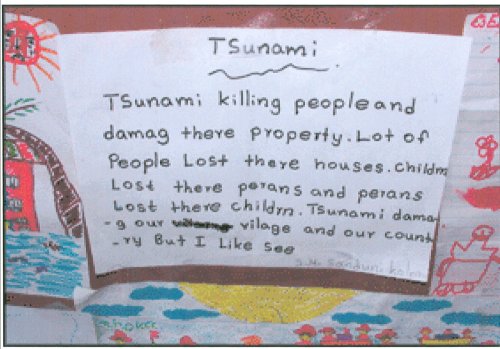 TSunami
TSunami killing people and
damag there property. Lot of
People Lost there houses. Childrn
Lost there perans and perans
Lost there childrn. TSunami dama
-g our vilage and our count
-ry But I Like See